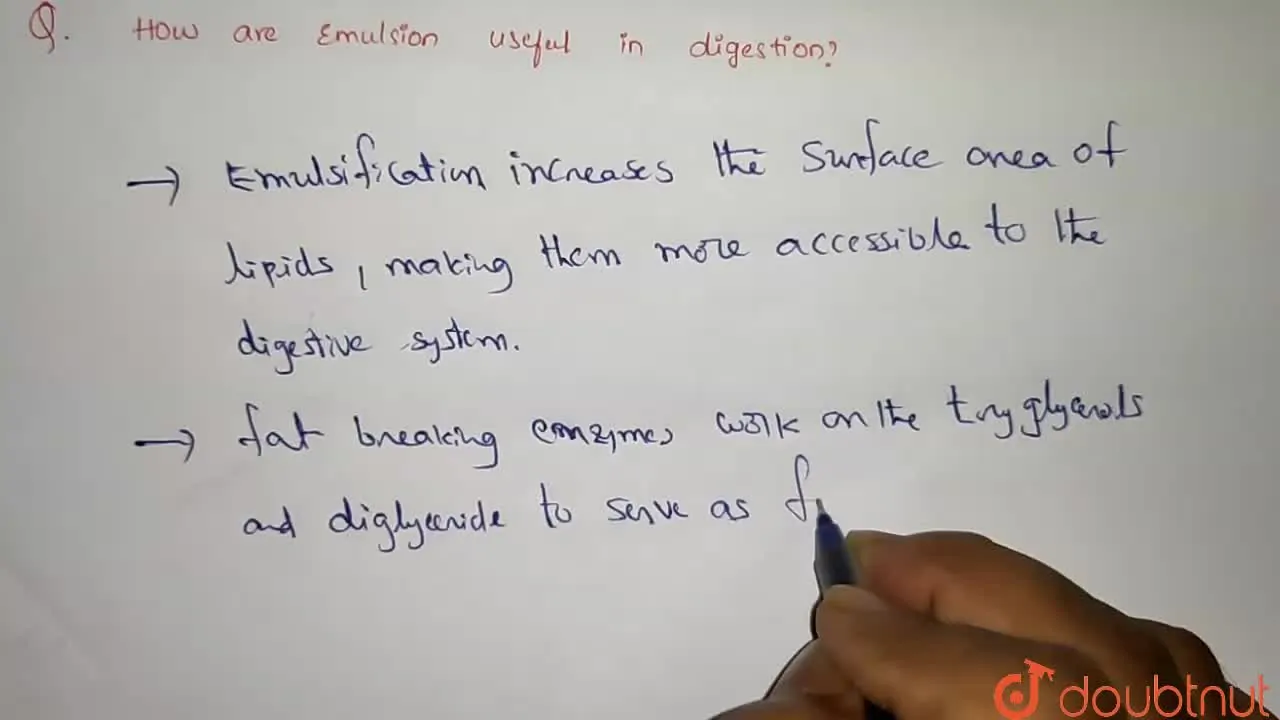 Q. How are Emulsion useful in digestion?
→ Emulsification increases the surface area of
lipids, making them more accessible to the
digestive system.
→ fat breaking enzymes work on the tryglycerols
and diglyceride to serve as
doubtnut